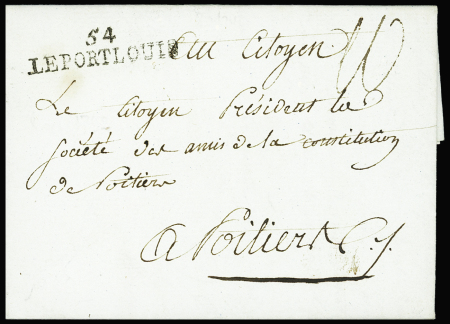 54
LEPORTLOUIS
Au Citoyen
Le Citoyen Président de la
Société des amis de la constitution
de Poitiers
A Poitiers